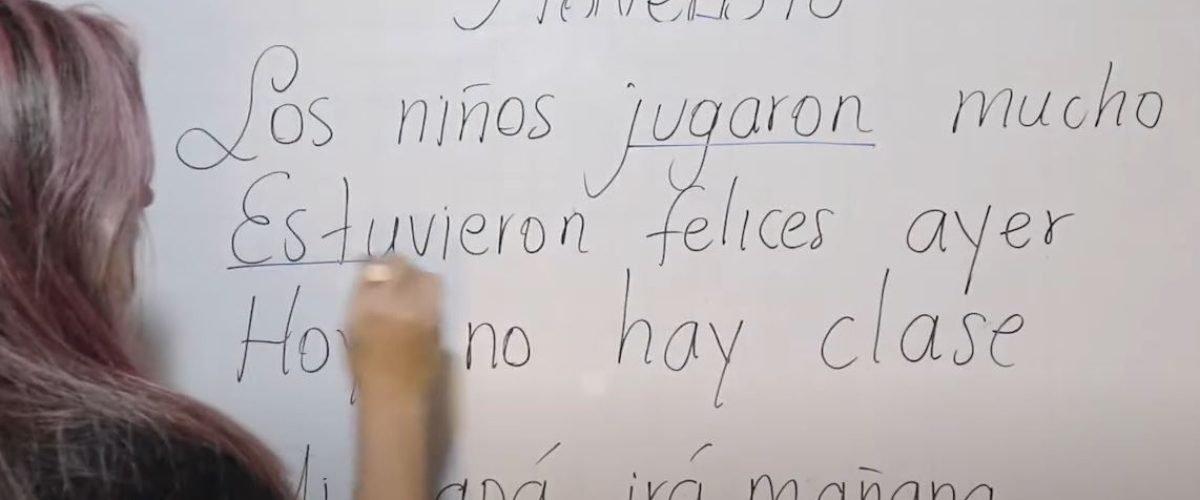 Los niños jugaron mucho
Estuvieron felices ayer
Hoy no hay clase
irá mañana